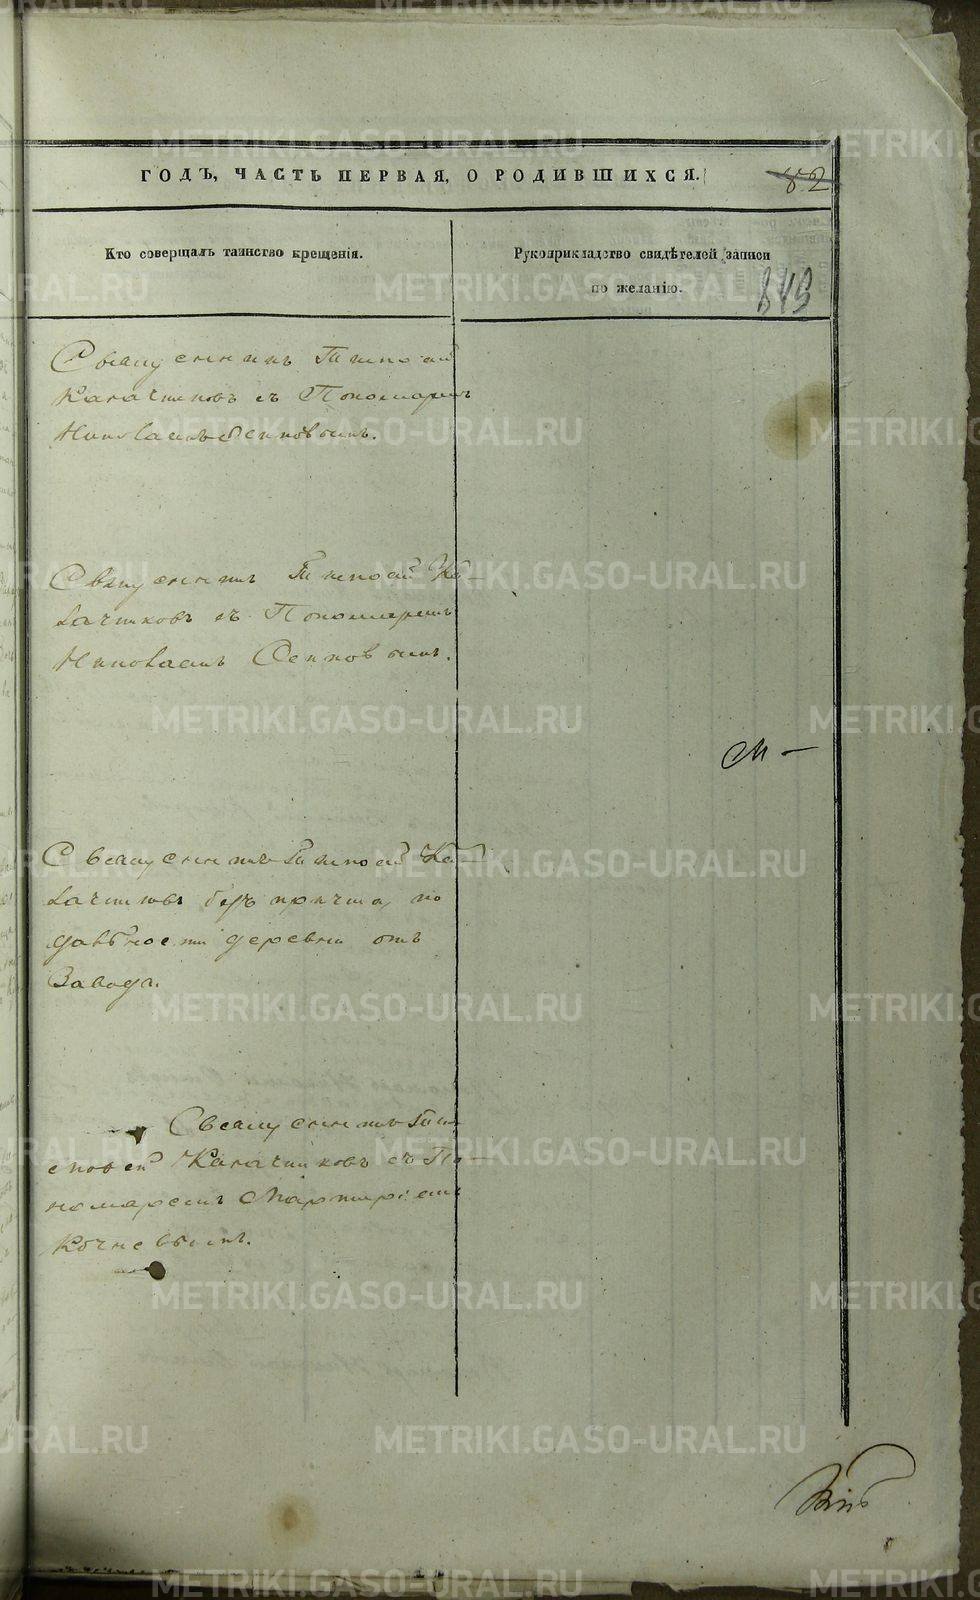 ГОДЪ, ЧАСТЬ ПЕРВАЯ, О РОДИВШИХСЯ.
82
Кто совершалъ таинство крещенія.
Рукоприкладство свидѣтелей записи
по желанію.
849
Священникъ Тимофей
Калачниковъ съ Пономаремъ
Николаемъ
Священникъ Тимофей Ка-
лачниковъ съ Пономаремъ
Николаемъ
Священникъ Тимофей Ка-
лачниковъ безъ причта, по
дальности деревни отъ
Завода.
Священникъ Ти-
мофей Калачниковъ съ По-
номаремъ Мартиріемъ
Кочневымъ.
METRIKI.GASO-URAL.RU